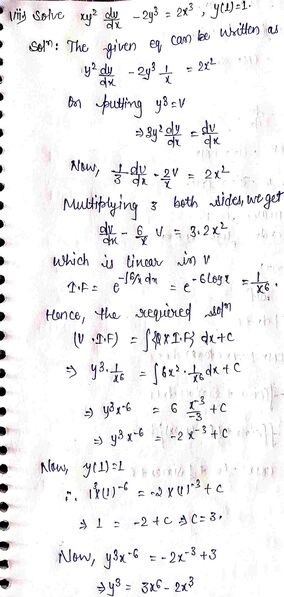 vii) Solve xy² dy/dx - 2y³ = 2x³, y(1)=1.
Solⁿ: The given eq can be written as
y² dy/dx - 2y³ 1/x = 2x²
On putting y³=v
⇒ 3y² dy/dx = dv/dx
Now, 1/3 dv/dx - 2/x v = 2x²
Multiplying 3 both sides, we get
dv/dx - 6/x v = 3.2x²
Which is linear in v
I.F = e^-∫6/x dx = e^-6logx = 1/x⁶
Hence, the required solⁿ
(v.I.F) = ∫{Q×I.F} dx + c
⇒ y³. 1/x⁶ = ∫6x². 1/x⁶ dx + c
⇒ y³x⁻⁶ = 6 x⁻³/-3 + c
⇒ y³x⁻⁶ = -2x⁻³ + c
Now, y(1)=1
∴ 1³×(1)⁻⁶ = -2×(1)⁻³ + c
⇒ 1 = -2 + c ⇒ c = 3.
Now, y³x⁻⁶ = -2x⁻³ + 3
⇒ y³ = 3x⁶ - 2x³